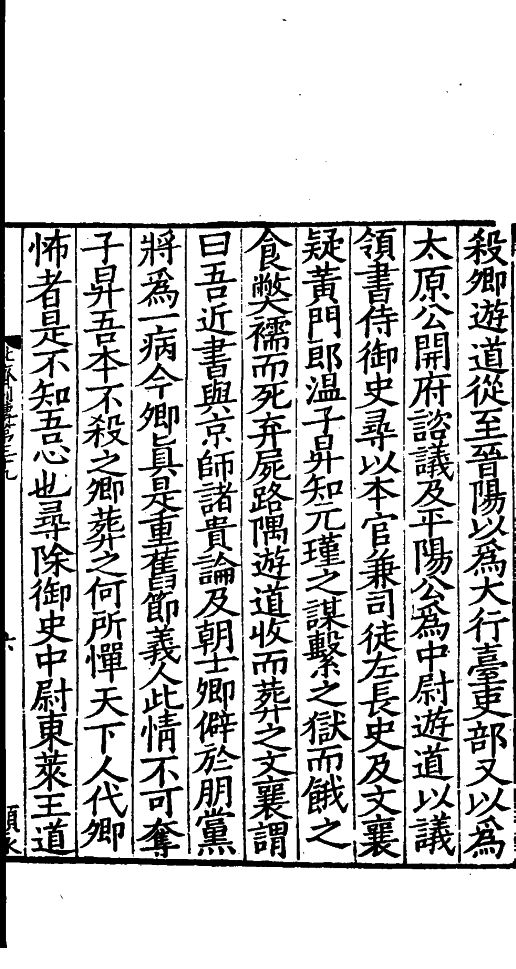 殺卿遊道從至晉陽以爲大行臺吏部又以爲
太原公開府諮議及平陽公爲中尉遊道以議
領書侍御史尋以本官兼司徒左長史及文襄
疑黃門郎溫子昇知元瑾之謀繫之獄而餓之
食弊襦而死弃屍路隅遊道收而葬之文襄謂
曰吾近書與京師諸貴論及朝士卿僻於朋黨
將爲一病今卿眞是重舊節義人此情不可奪
子昇吾本不殺之卿葬之何所憚天下人代卿
怖者是不知吾心也尋除御史中尉東萊王道
六